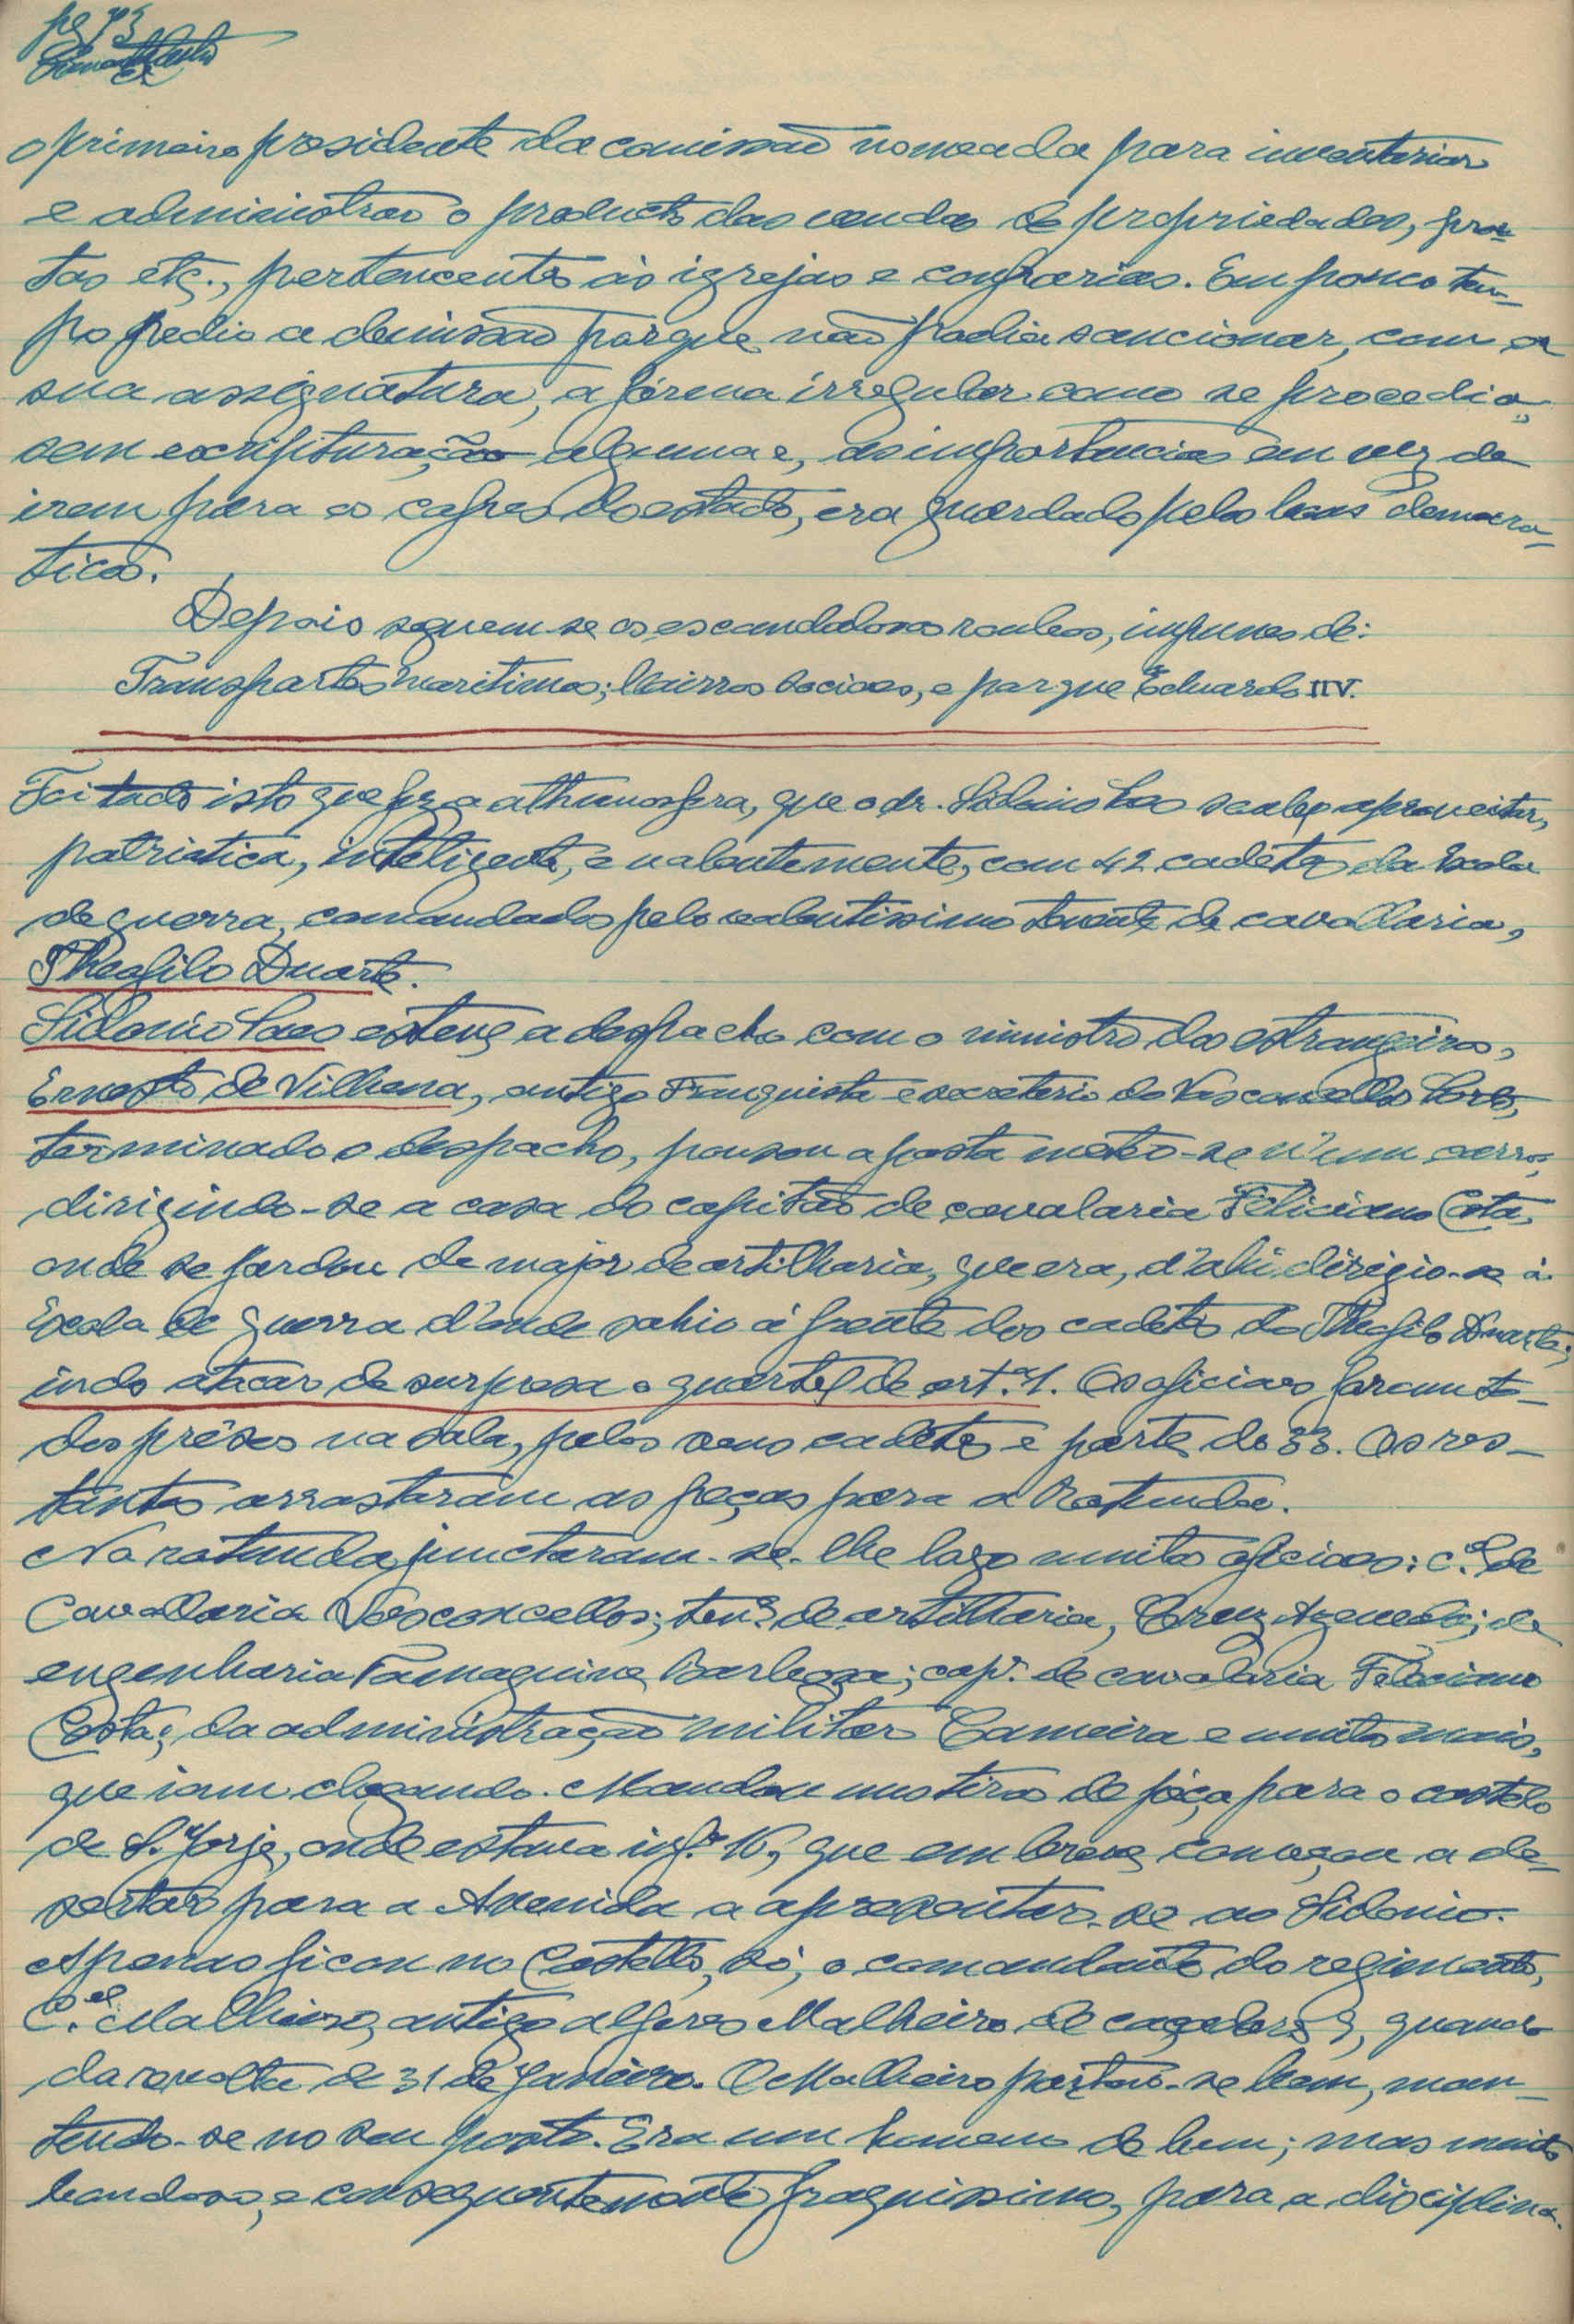 pg 73
o primeiro presidente da comissão nomeada para inventariar
e administrar o producto das vendas de propriedades, pra-
tas etc., pertencentes às igrejas e confrarias. Em pouco tem-
po pedio a demissão porque não podia sancionar, com a
sua assignatura, a fórma irregular como se procedia,
sem escripturação alguma e, as importancias em vez de
irem para os cofres do estado, era guardado pelos bons democra-
ticos.
Depois seguem-se os escandalosos roubos, impunes de:
Transportes maritimos; bairros sociaes, e parque Eduardo IIV.
Foi tudo isto que fez a athmosfera, que o dr. Sidonio Paes soube aproveitar,
patriotica, inteligente, e valentemente, com 42 cadetes da Escola
de guerra, comandados pelo valentissimo tenente de cavallaria,
Theofilo Duarte.
Sidonio Paes esteve a despacho com o ministro dos estrangeiros,
Ernesto de Vilhena, antigo Franquista e secretario do Vasconcellos Porto,
terminado o despacho, pousou a pasta meteo-se n'um carro,
dirigindo-se a casa do capitão de cavalaria Feliciano Costa,
onde se fardou de major de artilharia, que era, d'ahi dirigio-se á
Escola de guerra d'onde sahio á frente dos cadetes do Theofilo Duarte,
indo atacar de surpresa o quartel de art.ª 1. Os oficiaes foram to-
dos prêsos na sala, pelos seus cadetes e parte do 33. Os res-
tantes arrastaram as peças para a Rotunda.
Na rotunda junctaram-se-lhe logo muitos oficiaes: c.el de
Cavallaria Vasconcellos; ten.e de artilharia, Cruz Azevedo; de
engenharia Tamagnine Barbosa; cap.m de cavalaria Feliciano
Costa; da administração militar Cameira e muitos mais,
que iam chegando. Mandou uns tiros de pêça para o castelo
de S. Jorje, onde estava inf.ª 16, que em breve começou a de-
sertar para a Avenida a apresentar-se ao Sidonio.
Apenas ficou no Castello, só, o comandante do regimento,
C.el Malheiro, antigo alferes Malheiro de caçadores 9, quando
da revolta de 31 de Janeiro. O Malheiro portou-se bem, man-
tendo-se no seu posto. Era um homem de bem; mas muito
bondoso, e consequentemente fraquissimo, para a disciplina.